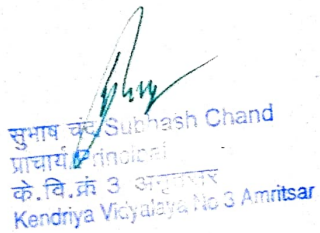 सुभाष चंद Subhash Chand
प्राचार्य/Principal
के.वि.क्रं 3 अमृतसर
Kendriya Vidyalaya No 3 Amritsar